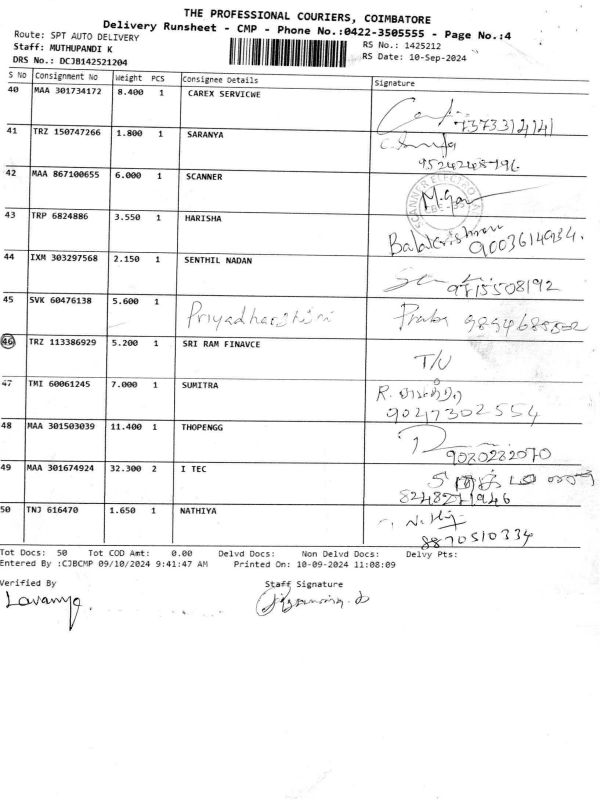 THE PROFESSIONAL COURIERS, COIMBATORE
Delivery Runsheet - CMP - Phone No.:0422-3505555 - Page No.:4
Route: SPT AUTO DELIVERY
Staff: MUTHUPANDI K
DRS No.: DCJB142521204
RS No.: 1425212
RS Date: 10-Sep-2024
S No Consignment No Weight PCS Consignee Details Signature
40 MAA 301734172 8.400 1 CAREX SERVICWE
7373314141
41 TRZ 150747266 1.800 1 SARANYA
9524248796
42 MAA 867100655 6.000 1 SCANNER
M.Gow
43 TRP 6824886 3.550 1 HARISHA
Balakrishnan
9003614934.
44 IXM 303297568 2.150 1 SENTHIL NADAN
9715508192
45 SVK 60476138 5.600 1 Priyadharshini Praba
46 TRZ 113386929 5.200 1 SRI RAM FINAVCE
T/U
47 TMI 60061245 7.000 1 SUMITRA
R.
9047302554
48 MAA 301503039 11.400 1 THOPENGG
9080282070
49 MAA 301674924 32.300 2 I TEC
50 TNJ 616470 1.650 1 NATHIYA
8870510334
Tot Docs: 50 Tot COD Amt: 0.00 Delvd Docs: Non Delvd Docs: Delvy Pts:
Entered By :CJBCMP 09/10/2024 9:41:47 AM Printed On: 10-09-2024 11:08:09
Verified By Staff Signature
Lavanya